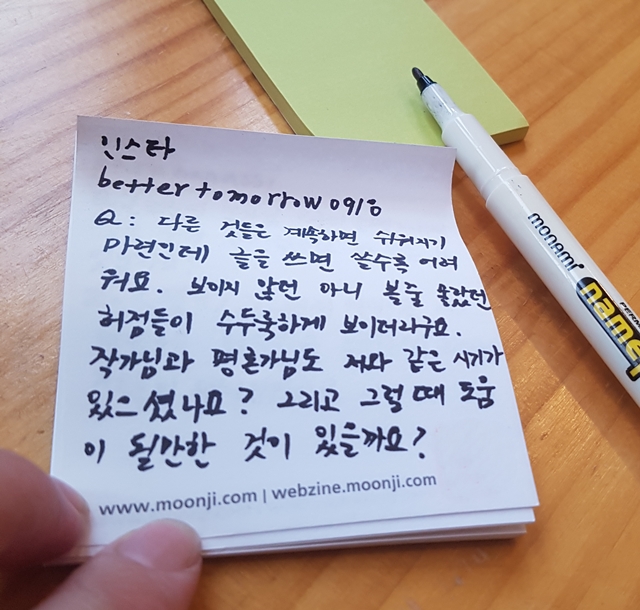 인스타
bettertomorrow0918
Q: 다른 것들은 계속하면 쉬워지기
마련인데 글을 쓰면 쓸수록 어려
워요. 보이지 않던 아니 볼줄 몰랐던
허점들이 수두룩하게 보이더라구요.
작가님과 평론가님도 저와 같은 시기가
있으셨나요? 그리고 그럴 때 도움
이 될만한 것이 있을까요?
www.moonji.com | webzine.moonji.com
monami
name